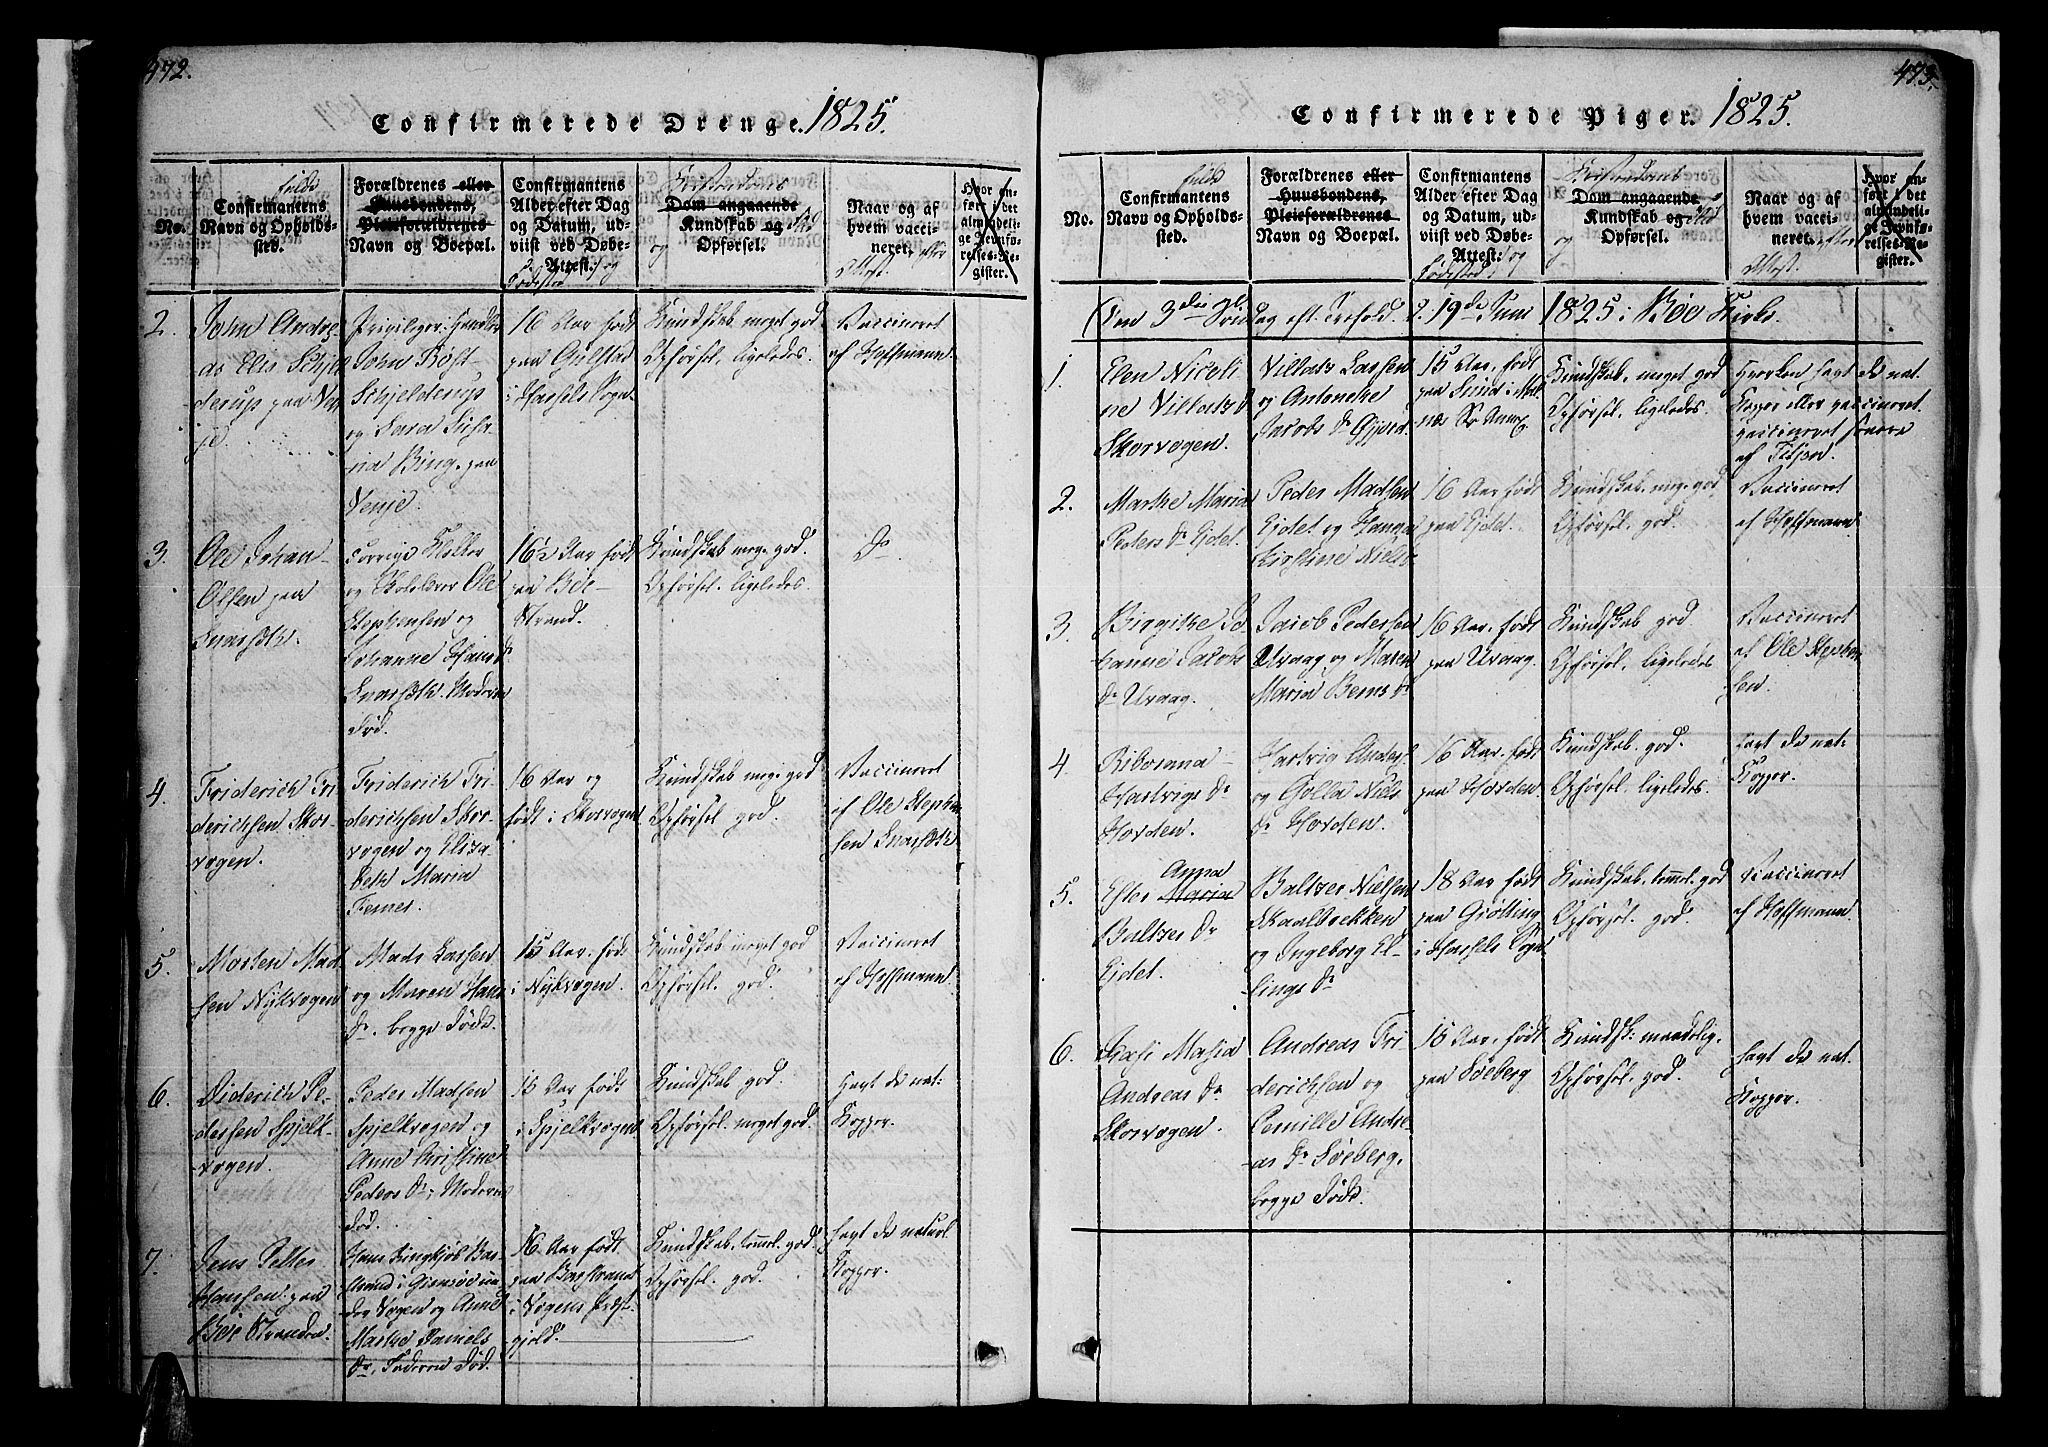 472.
Confirmerede Drenge. 1825.
No.
fulde
Confirmantens
Navn og Opholds-
sted.
Forældrenes eller
Huusbondens,
Pleieforældrenes
Navn og Boepæl.
Confirmantens
Alder efter Dag
og Datum, ud-
viist ved Døbe-
Attest: og
Fødested
Christendoms
Dom angaaende
Kundskab og
og Opførsel.
Naar og af
hvem vacci-
neret.
Hvor an-
ført i det
almindeli-
ge Jevnfø-
relses-Re-
gister.
2.
John Andre-
as Elis Schjel-
derup paa Ven-
je
John Røst
Schjelderup
og Sara Susa-
na Bing. paa
Venje.
16 Aar født
paa Gulstad
i Hassels Sogn
Kundskab meget god
Opførsel. ligeledes.
Vaccineret
af Hoffmann.
3.
Ole Johan
Olsen paa
forrige Kloller
og Skolelærer Ole
Stephensen og
Johanne Hans D.
Moderen
død.
16½ Aar født
paa Bøe-
Strand.
Kundskab meg. god.
Opførsel. ligeledes
Do
4.
Friderich Fri-
derichsen Skor-
vogen.
Friderich Fri-
derichsen Skor-
vogen og Eliza-
beth Maria
16 Aar og
født i Skorvogen
Kundskab meg. god
Opførsel god.
Vaccineret
af Ole Stephen-
sen
5.
Morten Mad-
sen Nykvogen
Mads Larsen
og Maren Hans
Dr. begge døde.
15 Aar. født
i Nykvogen.
Kundskab meget god
Opførsel. god.
Vaccineret
af Hoffmann.
6.
Diderich Pe-
dersen Spjelk-
vogen.
Peder Madsen
Spjelkvogen og
Anne Christine
Peders Dr. Moderen
død.
15 Aar født
i Spjelkvogen
Kundskab god.
Opførsel. meget god.
Havt de nat.
Kopper.
7.
Jens Petter
Hansen paa
Bøe Stranden.
Hans Ringkjøb Bar-
strand i Gimsøe un-
der Vogen og Anne
Marthe Daniels
Dr. Faderen død.
16 Aar født
paa Barstrand
i Vogens Præst-
gjeld.
Kundskab. temmel. god
Opførsel. god.
havt de naturl.
Kopper.
473.
Confirmerede Piger. 1825.
No.
fulde
Confirmantens
Navn og Opholds-
sted.
Forældrenes eller
Huusbondens,
Pleieforældrenes
Navn og Boepæl.
Confirmantens
Alder efter Dag
og Datum, ud-
viist ved Døbe-
Attest: og
Fødested
Christendoms
Dom angaaende
Kundskab og
og Opførsel.
Naar og af
hvem vacci-
neret.
Hvor an-
ført i det
almindeli-
ge Jevnfø-
relses-Re-
gister.
Den 3die Søndag eft. Trefold. d. 19de Juni 1825 i Bøe Kirke.
1.
Elen Nicoli-
ne Villats D.
Skorvogen.
Villats Larsen
og Antonette
Jacobs Dr
15 Aar. født
paa Sund i
Kundskab. meget god
Opførsel. ligeledes.
Hverken havt de nat.
Kopper eller vaccineret.
vaccineret senere
af
2.
Marthe Maria
Peders Dr Eidet.
Peder Madsen
Eidet og Hanna
Kirstine Niels
16 Aar født
paa Eidet.
Kundskab. meg. god
Opførsel. god.
Vaccineret
af Hoffmann
3.
Birgithe Jo-
hanne Jacobs
Dr Uvaag.
Jacob Pedersen
Uvaag og Maren
Maria Bernts Dr
16 Aar. født
paa Uvaag.
Kundskab god
Opførsel. ligeledes
Vaccineret
af Ole Stephen-
sen.
4.
Hartvigs Dr
Horden.
Hartvig Anders.
og Golla Niels
Dr Horden.
16 Aar. født
paa Horden
Kundskab. god.
Opførsel. ligeledes.
havt de nat.
Kopper.
5.
Anna
Ester Maria
Baltzers Dr
Eidet.
Baltzer Nielsen
Skaalbrekken
og Ingeborg El-
lings Dr
18 Aar født
paa Grøtting
i Hassels Sogn.
Kundskab. temmel. god
Opførsel. god.
Vaccineret
af Hoffmann.
6.
Maria
Andreas Dr
Skorvogen.
Andreas Fri-
derichsen og
Pernille Andre-
as Dr Søeberg.
begge døde.
15 Aar. født
paa Søeberg
Kundsk. maadelig.
Opførsel. god.
havt de nat.
Kopper.